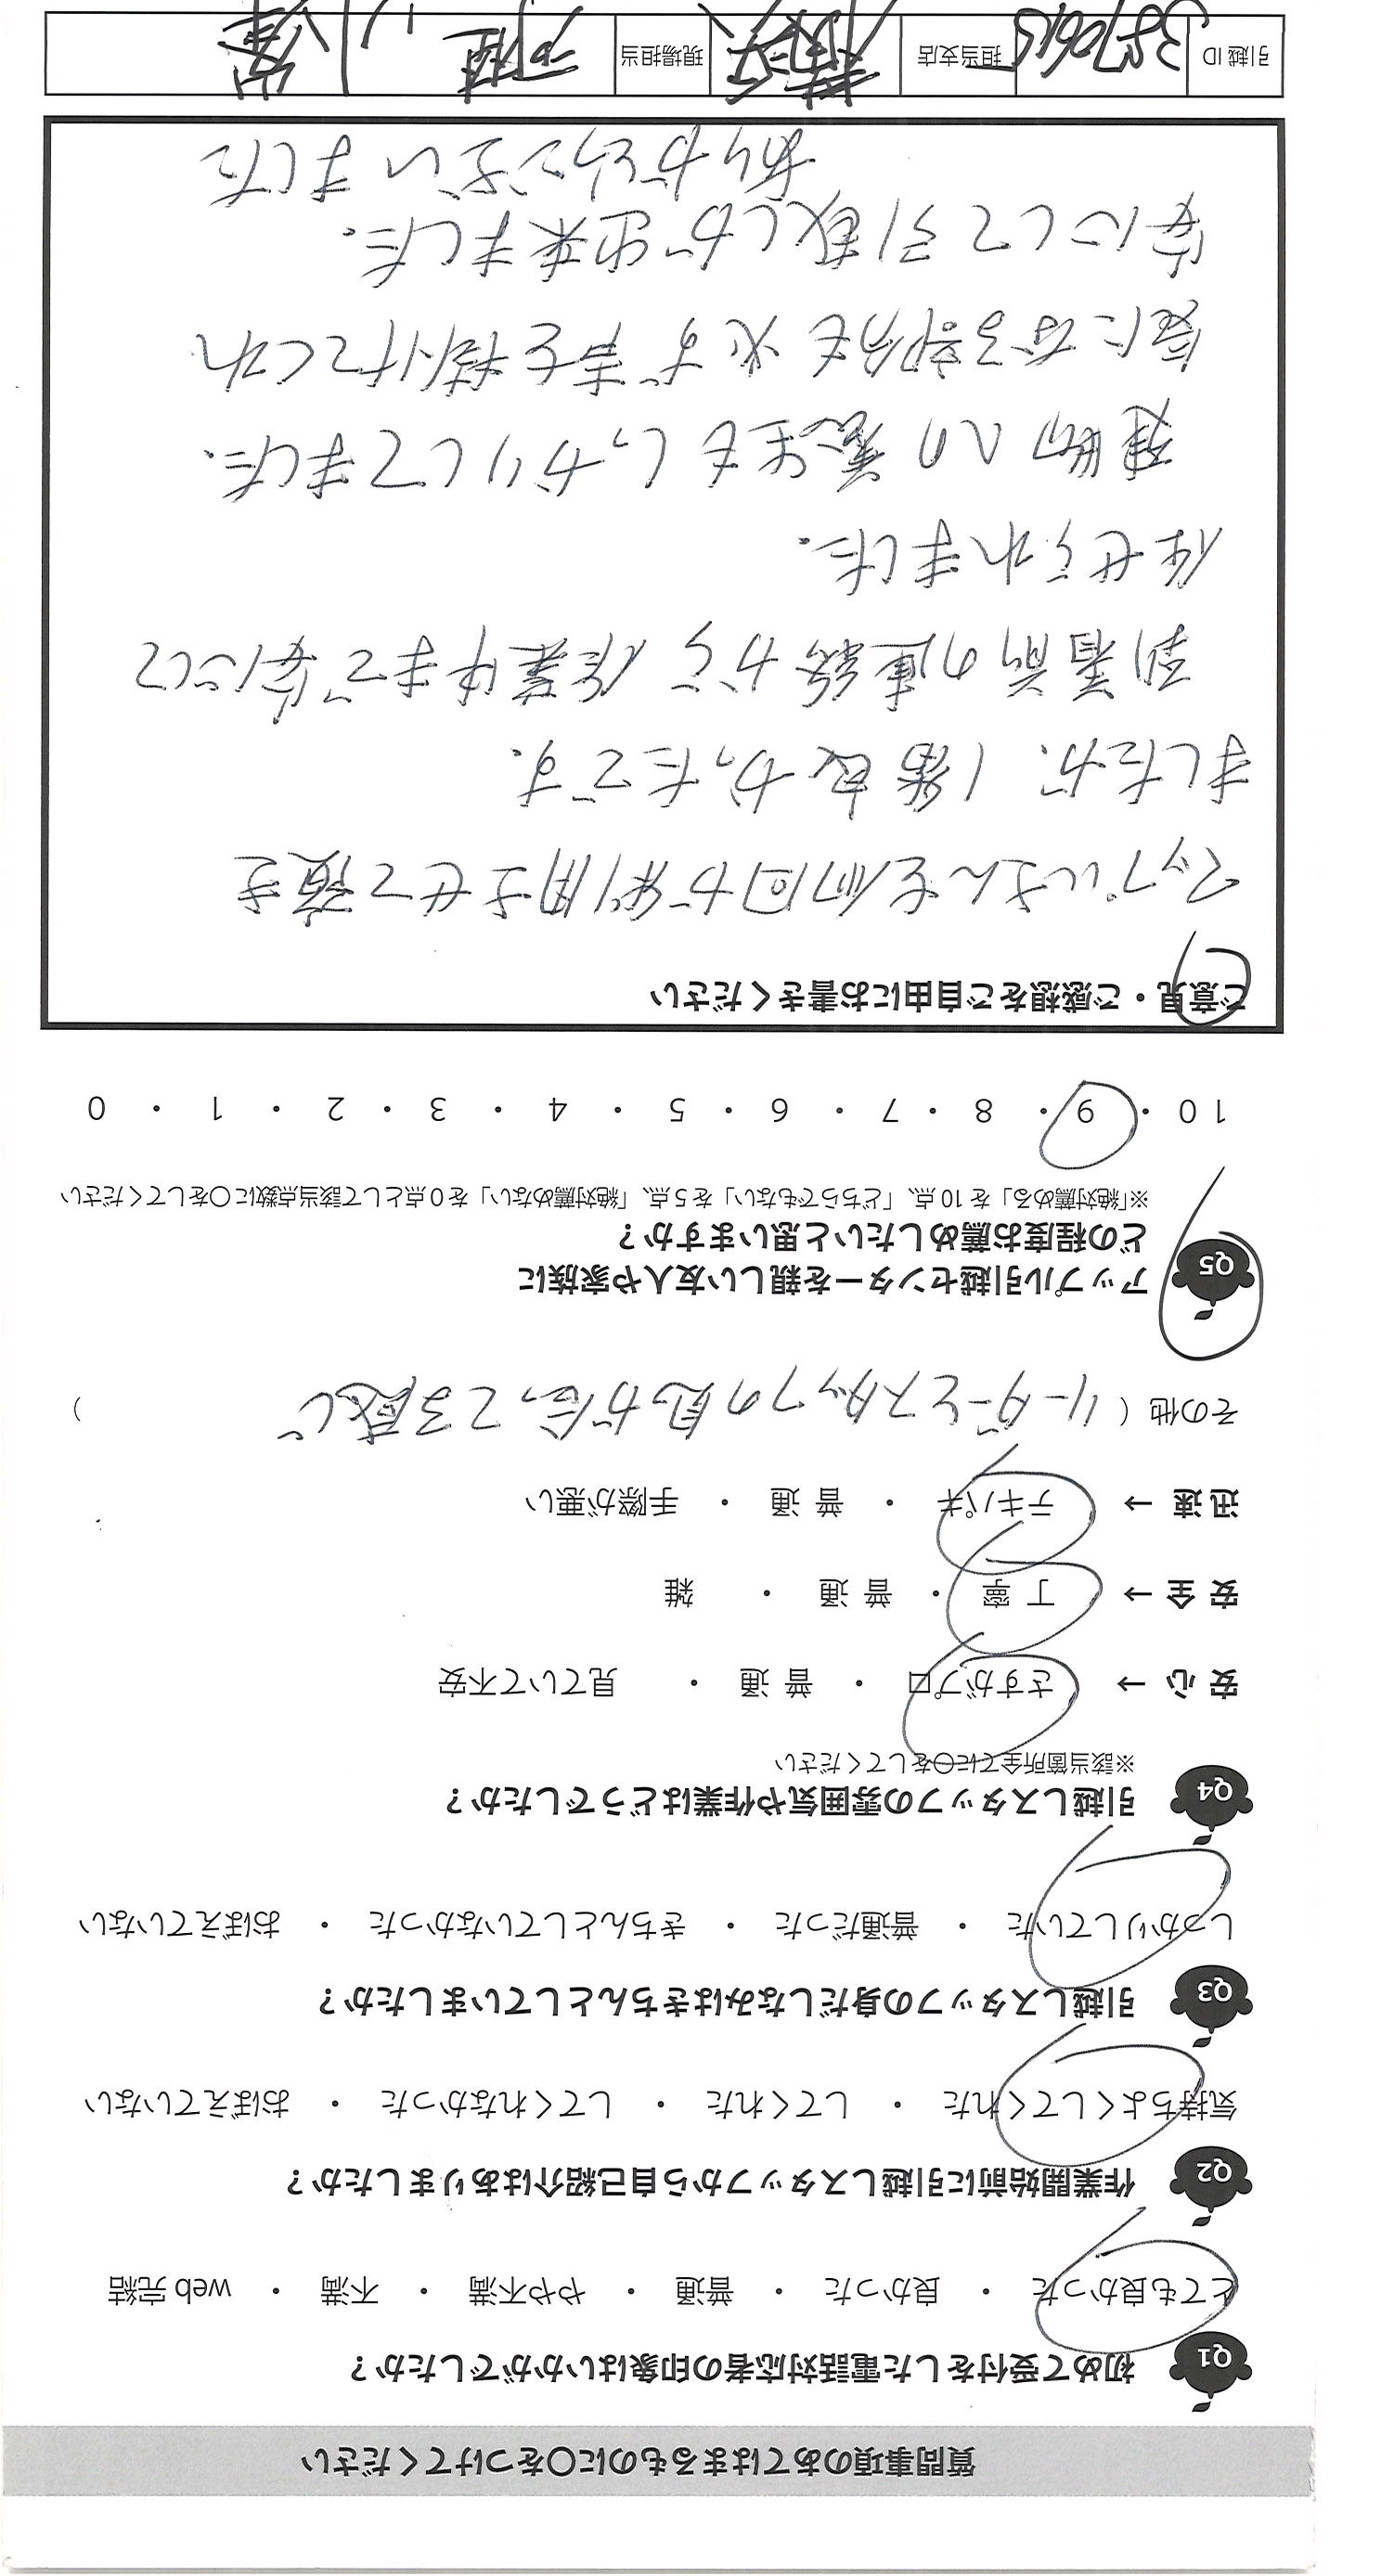 質問事項のあてはまるものに○をつけてください
Q1 初めて受付をした電話対応者の印象はいかがでしたか？
とても良かった ・ 良かった ・ 普通 ・ やや不満 ・ 不満 ・ web 完結
Q2 作業開始前に引越しスタッフから自己紹介はありましたか？
気持ちよくしてくれた ・ してくれた ・ してくれなかった ・ おぼえていない
Q3 引越しスタッフの身だしなみはきちんとしていましたか？
しっかりしていた ・ 普通だった ・ きちんとしていなかった ・ おぼえていない
Q4 引越しスタッフの雰囲気や作業はどうでしたか？
※該当箇所全てに○をしてください
安 心 → さすがプロ ・ 普 通 ・ 見ていて不安
安 全 → 丁 寧 ・ 普 通 ・ 雑
迅 速 → テキパキ ・ 普 通 ・ 手際が悪い
その他（ リーダーとスタッフの息が合ってる感じ ）
Q5 アップル引越センターを親しい友人や家族に
どの程度お薦めしたいと思いますか？
※「絶対薦める」を 10 点、「どちらでもない」を 5 点、「絶対薦めない」を 0 点として該当点数に○をしてください
10 ・ 9 ・ 8 ・ 7 ・ 6 ・ 5 ・ 4 ・ 3 ・ 2 ・ 1 ・ 0
ご意見・ご感想をご自由にお書きください
アップルさんを何回か利用させて頂き
ましたが、1番良かったです。
到着前の連絡から 作業中まで安心して
任せられました。
建物への養生もしっかりしてました。
気になる部分も必ず声を掛けてくれ
安心して引越しが出来ました。
ありがとうございました
引越 ID 担当支店 横浜 現場担当